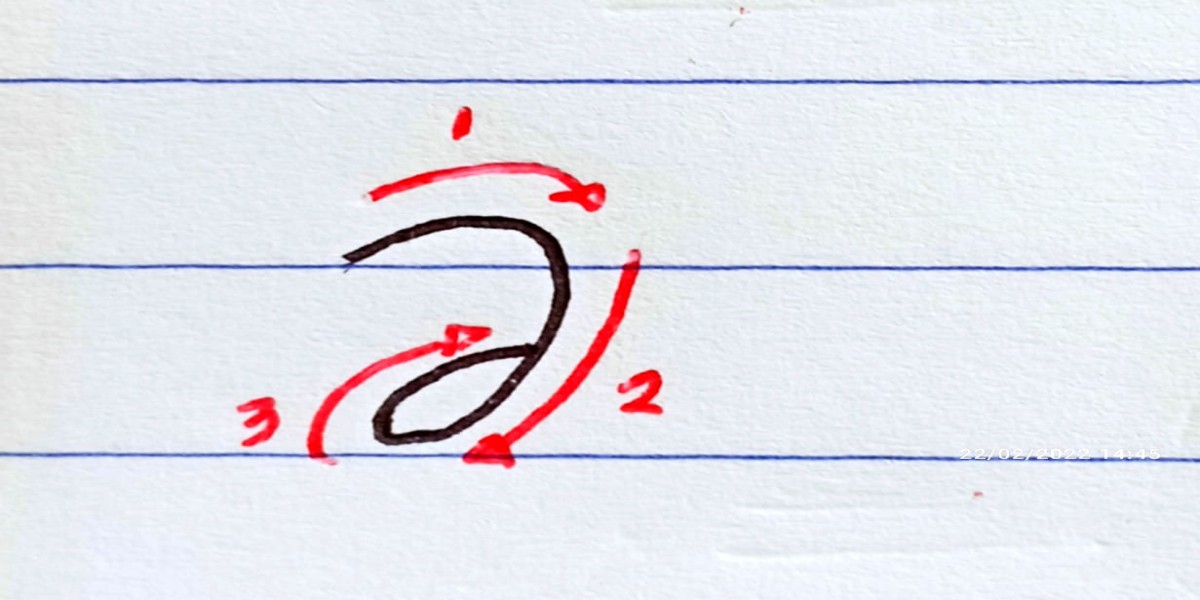 1
ა
2
3
22/02/2022 14:45